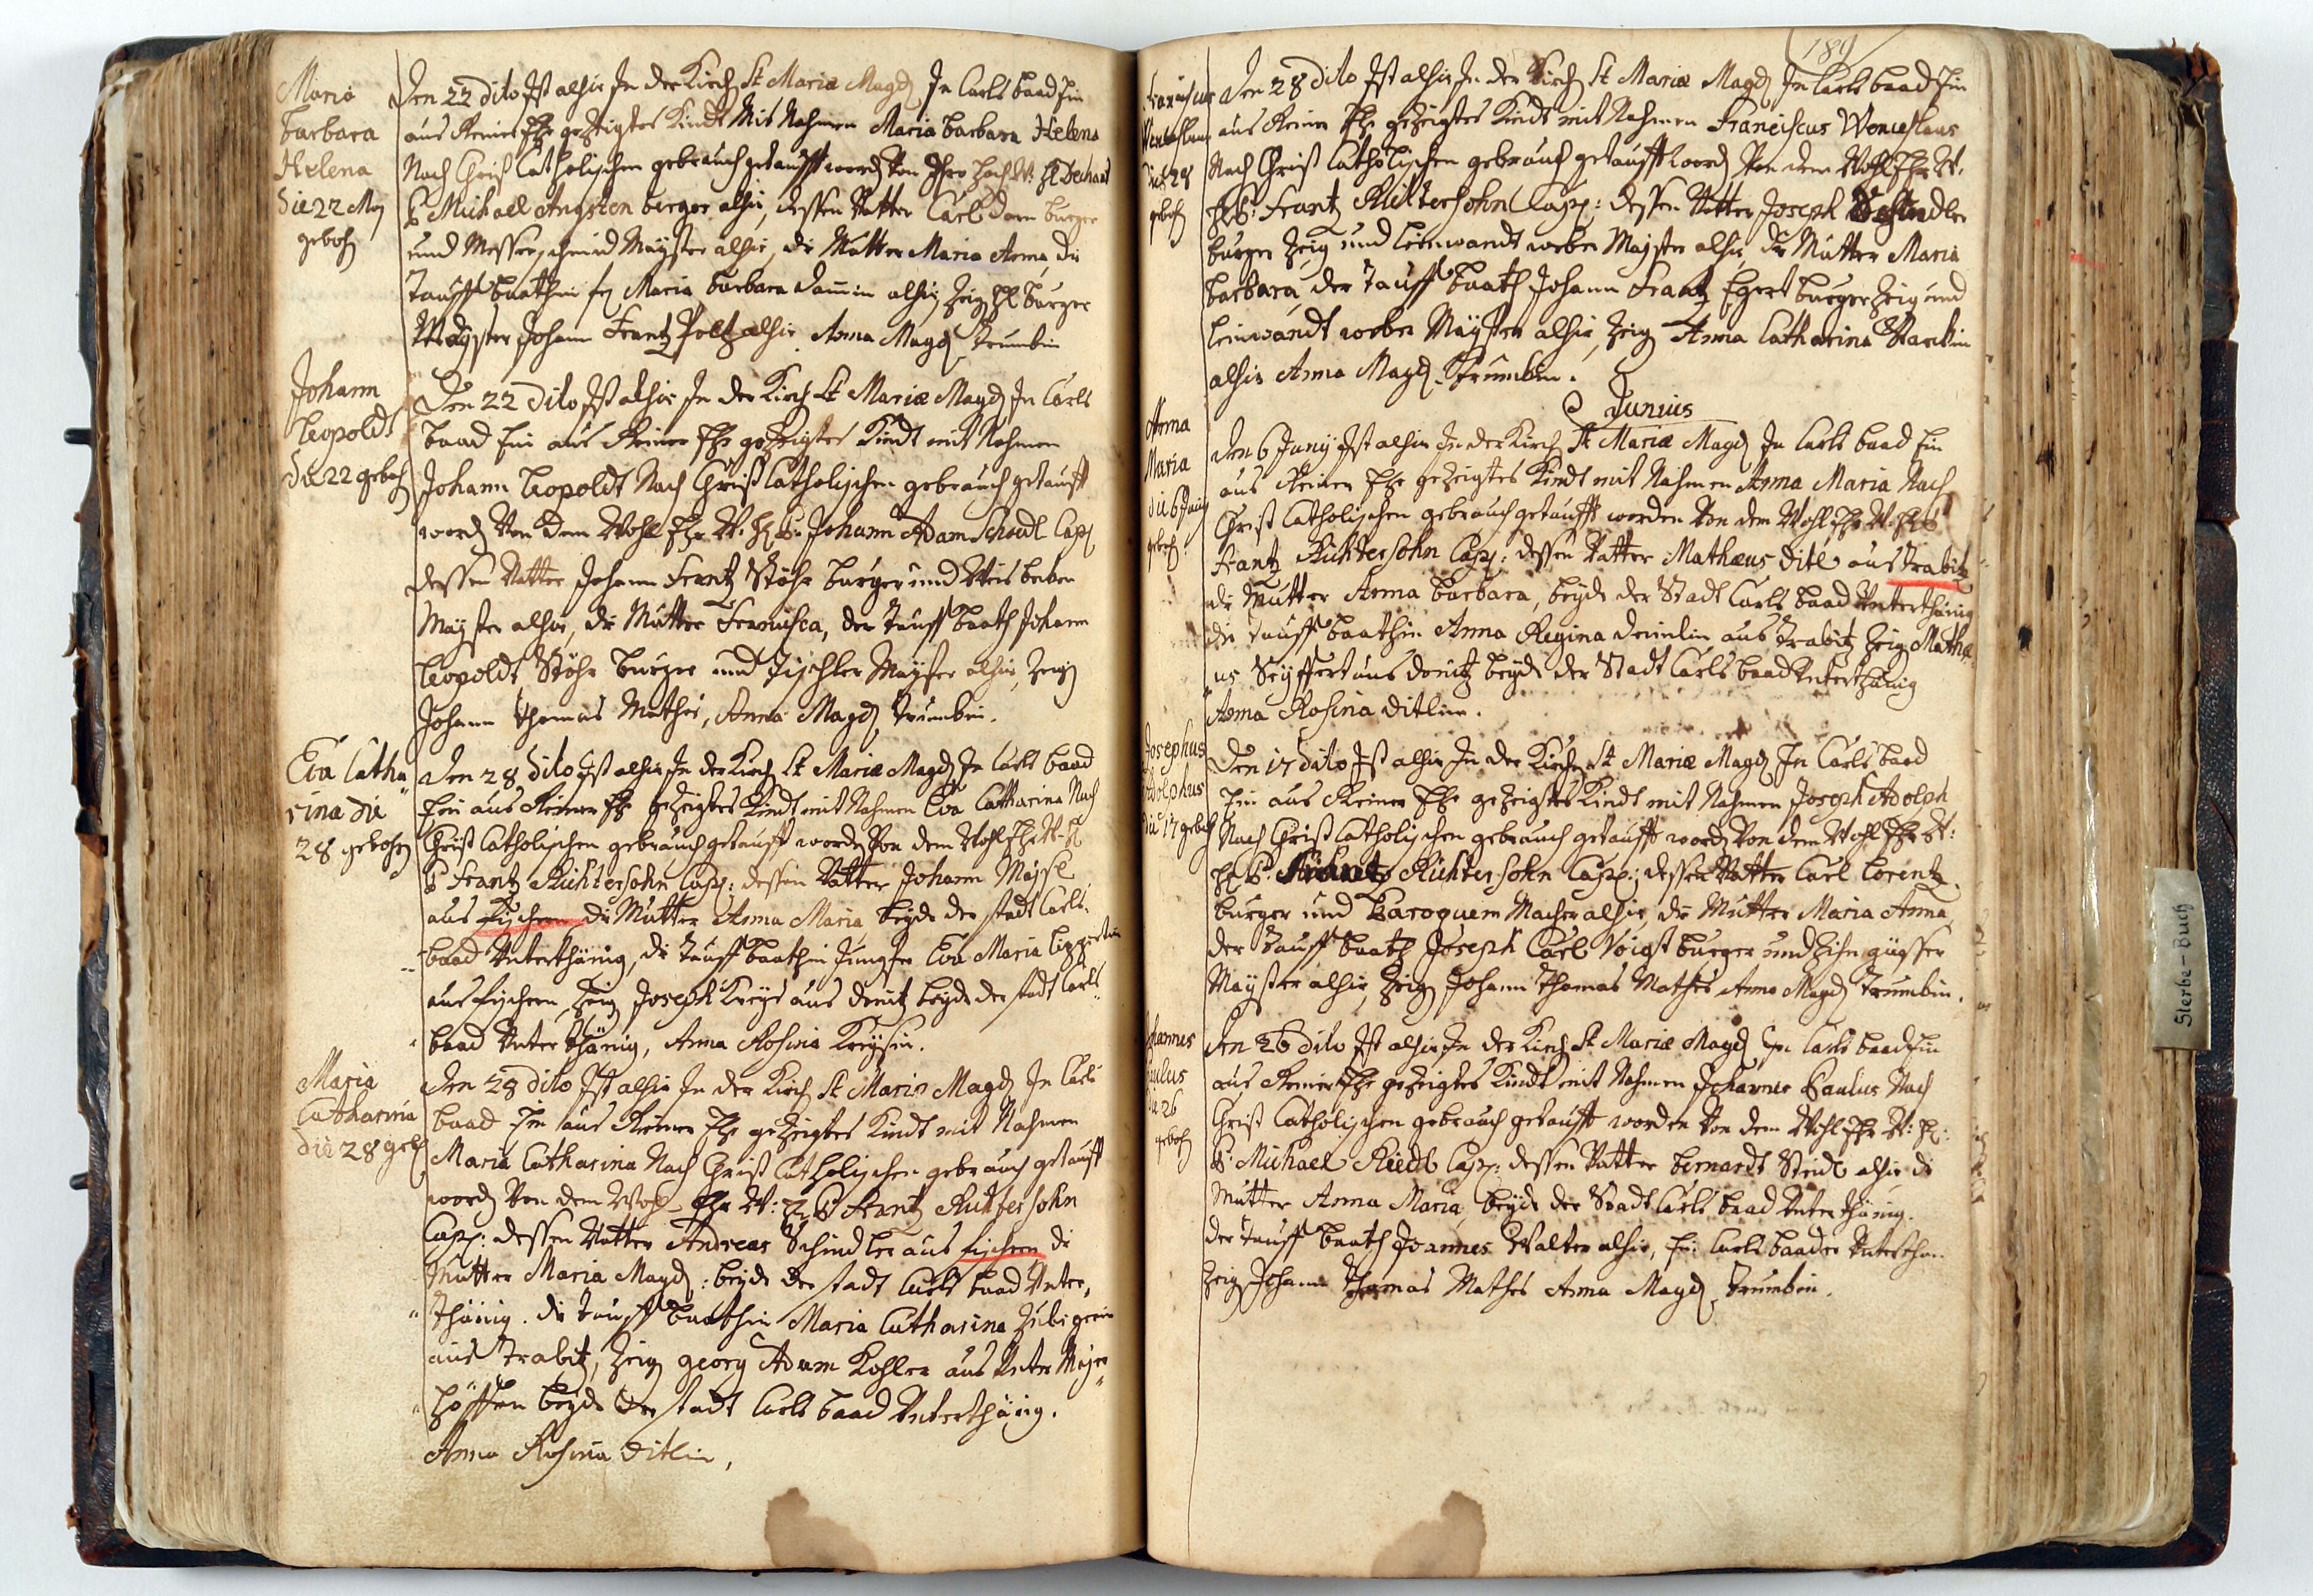 Maria
Barbara
Helena
die 22 May
gebohr
Den 22 dito Ist alhir In der Kirch St Mariæ Magd In Carls baad Ein
aus Reiner Ehe gezeigtes Kindt Mit Nahmen Maria barbara Helena
Nach Christ Catholischen gebrauch getaufft word Von Ihro Hoch W: H Dechant
P Michael Angsten burger alhir, dessen Vatter Carl Dom burger
und Messerschmid Mayster alhir, di Mutter Maria Anna, di
Tauff baathin Maria barbara alhir Zeig H burger
Mayster Johann Frantz Poltz alhir Anna Magd Trumbin
Johann
Leopoldt
die 22 geboh
Den 22 dito Ist alhir In der Kirch St Mariæ Magd In Carls
baad Ein aus Reiner Ehe gezeigtes Kindt mit Nahmen
Johann Leopoldt Nach Christ Catholischen gebrauch getaufft
word Von Dem Wohl Ehr W. H P: Johann Adam Capp
dessen Vatter Johann Frantz Stöhr burger und Weis becken
Mayster alhir, di Mutter Francisca, der Tauff baath Johann
Leopoldt Stöhr burger und Tischler Mayster alhir, Zeig
Johann Thomas Mathes, Anna Magd Trumbin.
Eva Catha
rina die
28 gebohr
Den 28 dito Ist alhir In der Kirch St Mariæ Magd In Carls baad
Ein aus Reiner Ehe gezeigtes Kindt mit Nahmen Eva Catharina Nach
Christ Catholischen gebrauch getaufft word Von dem Wohl Ehr W. H
P Frantz Richtersohn Capp: dessen Vatter Johann Mäysl
aus Fischern di Mutter Anna Maria, beyde der stadt Carls
baad Unterthänig, di Tauff baathin Jungfer Eva Maria Lippertin
aus Fischern, Zeig Joseph Kreys aus Donitz beyde der stadt Carls
baad Unterthänig, Anna Rosina Kreysin.
Maria
Catharina
die 28 geb
Den 28 dito Ist alhir In der Kirch St Mariæ Magd In Carls
baad Ein aus Reiner Ehe gezeigtes Kindt mit Nahmen
Maria Catharina Nach Christ Catholischen gebrauch getaufft
word Von dem Wohl Ehr W: H P Frantz Richtersohn
Capp: dessen Vatter Andreas Schindler aus Fischern di
Mutter Maria Magd: beyde der stadt Carls baad Unter
thänig. di Tauff baathin Maria Catharina
aus Trabitz, Zeig georg Adam Kohler aus Unter Mayer
höffen beyde der stadt Carls baad Unterthänig.
Anna Rosina Ditlin,
189
Franciscus
Wenceslaus
die 28
geboh
Den 28 dito Ist alhir In der Kirch St Mariæ Magd In Carls baad Ein
aus Reiner Ehe gezeigtes Kindt mit Nahmen Franciscus Wenceslaus
Nach Christ Catholischen gebrauch getaufft word Von dem Wohl Ehr W.
H P: Frantz Richtersohn Capp: dessen Vatter Joseph Schindler
burger Zeig und Leinwandt weber Mayster alhir di Mutter Maria
barbara, der Tauff baath Johann Frantz Egert burger Zeig und
Leinwandt weber Mayster alhir, Zeig Anna Catharina Starckin
alhir Anna Magd. Trumbin.
Junius
Anna
Maria
die 6 Juny
geboh.
Den 6 Juny Ist alhir In der Kirch St Mariæ Magd In Carls baad Ein
aus Reiner Ehe gezeigtes Kindt mit Nahmen Anna Maria Nach
Christ Catholischen gebrauch getaufft worden Von dem Wohl Ehr W. H P
Frantz Richtersohn Capp: dessen Vatter Mathæus Ditl aus Trabitz
di Mutter Anna barbara, beyde der Stadt Carls baad Unterthänig
di Tauff baathin Anna Regina aus Trabitz Zeig Mathæ
us Seyffert aus Donitz beyde der Stadt Carls baad Unterthänig
Anna Rosina Ditlin.
Josephus
Adolphus
die 17 geboh
Den 17 dito Ist alhir In der Kirchen St Mariæ Magd In Carls baad
Ein aus Reiner Ehe gezeigtes Kindt mit Nahmen Joseph Adolph
Nach Christ Catholischen gebrauch getaufft word Von dem Wohl Ehr W:
H P: Frantz Richtersohn Capp: dessen Vatter Carl Lorentz
burger und Baroquem Macher alhir, di Mutter Maria Anna,
der Tauff baath Joseph Carl Voigt burger und Zihn güesser
Mayster alhir, Zeig Johann Thomas Mathes Anna Magd Trumbin.
Johannes
Paulus
die 26
geboh
Den 26 dito Ist alhir In der Kirch St Mariæ Magd In Carls baad Ein
aus Reiner Ehe gezeigtes Kindt mit Nahmen Johannes Paulus Nach
Christ Catholischen gebrauch getaufft worden Von dem Wohl Ehr W: H:
P: Michael Riedl Capp: dessen Vatter bernardt Steidl alhir di
Mutter Anna Maria, beyde der Stadt Carls baad Unterthänig.
der Tauff baath Joannes Walter alhir, Ein Carls baader Unterthan
Zeig Johann Thomas Mathes Anna Magd. Trumbin.
Sterbe-Buch